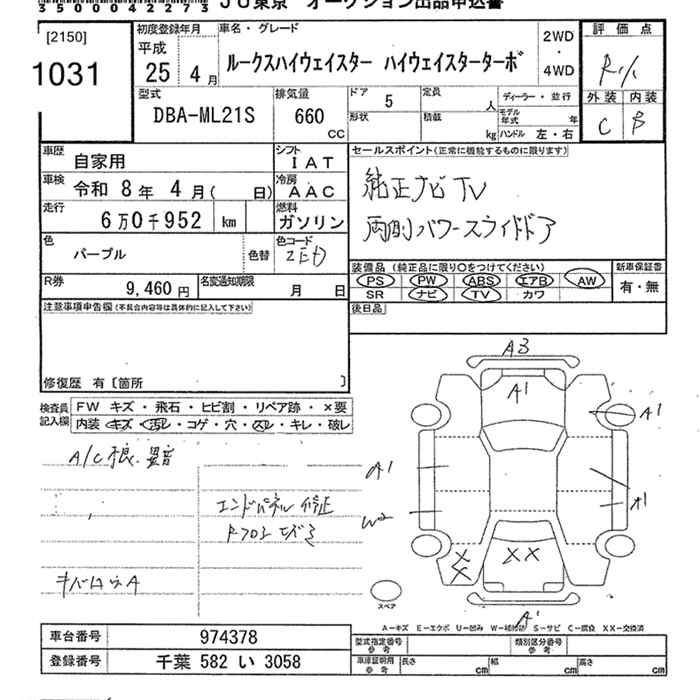 35000042273 JU東京 オークション出品申込書
[2150]
1031
初度登録年月
平成
25 4 月
車名・グレード
ルークスハイウェイスター ハイウェイスターターボ
2WD
・
4WD
評価点
R
外装 内装
C B
型式
DBA-ML21S
排気量
660
CC
ドア 5
定員 人
形状
積載 kg
ディーラー・並行
モデル年式 年
ハンドル 左・右
車歴
自家用
シフト
IAT
車検
令和 8 年 4 月( 日)
冷房
AAC
走行
6万0千952 km
燃料
ガソリン
色
パープル
色替
色コード
R券
9,460 円
名変通知期限
月 日
セールスポイント(正常に機能するものに限ります)
純正ナビ TV
両側パワースライドドア
装備品 (純正品に限り○をつけてください)
PS PW ABS エアB AW
SR ナビ TV カワ
新車保証書
有・無
後日品
注意事項申告欄(不具合内容等は具体的に記入して下さい)
修復歴 有〔箇所 〕
検査員記入欄
FW キズ・飛石・ヒビ割・リペア跡・×要
内装 キズ・汚レ・コゲ・穴・スレ・キレ・破レ
A/C 不良 異音
エンドパネル修正
A3
A1
A1
A1
A1
W2
XX
A1
スペア
A-キズ E-エクボ U-凹み W-補修跡 S-サビ C-腐食 XX-交換済
車台番号
974378
登録番号
千葉 582 い 3058
型式指定番号
参考
類別区分番号
参考
車庫証明用
参考
長さ cm
幅 cm
高さ cm